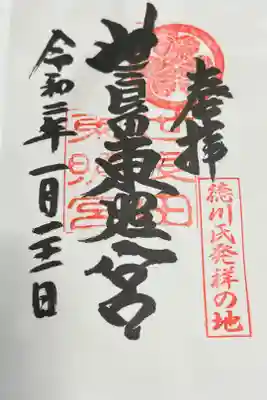 奉拝
徳川氏発祥の地
世良田東照宮
世良田
東照宮
令和二年一月二十二日